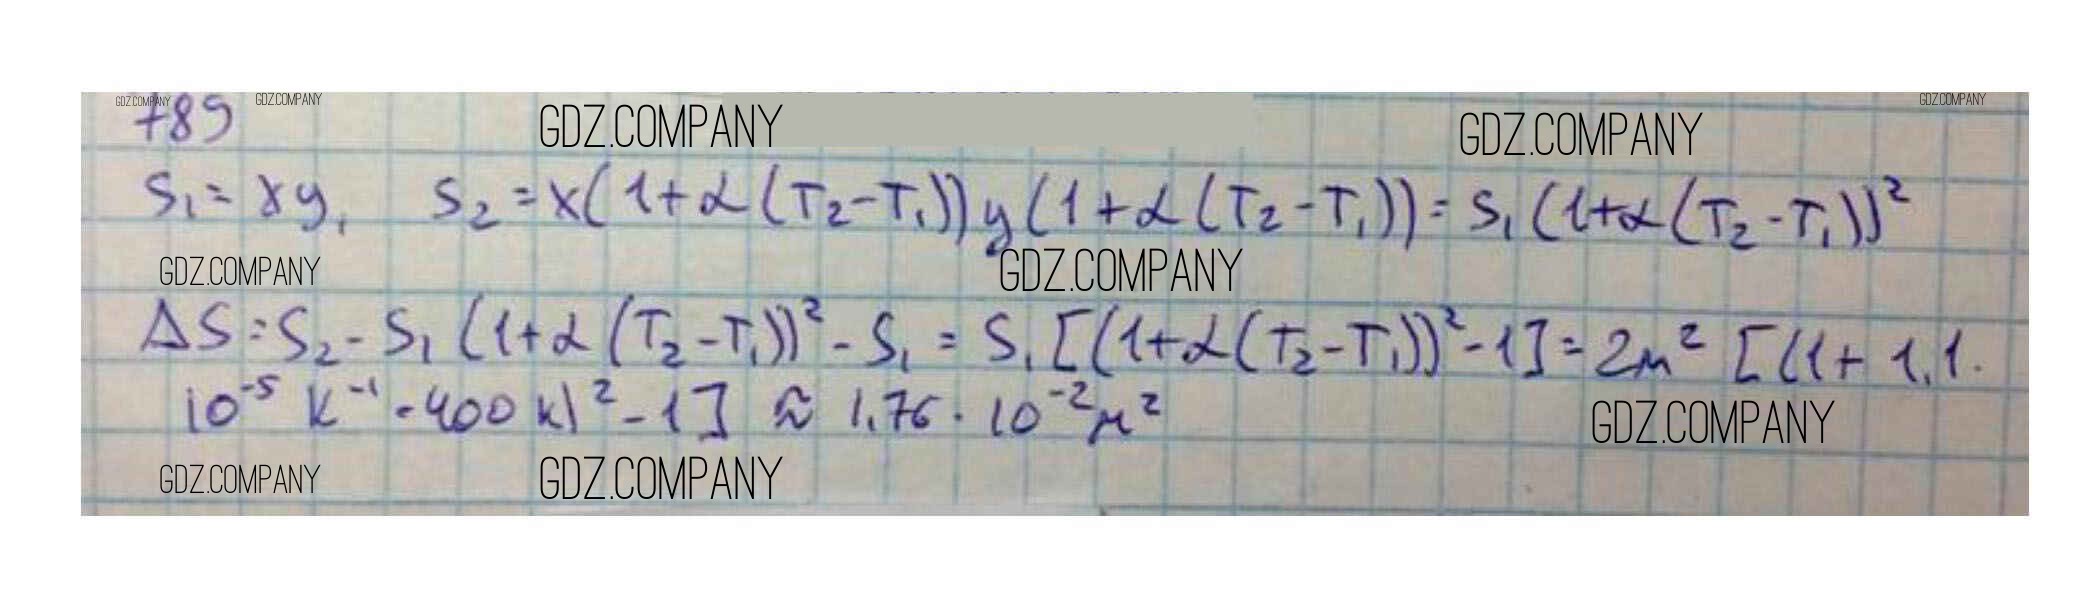 GDZ.COMPANY GDZ.COMPANY GDZ.COMPANY
789 GDZ.COMPANY GDZ.COMPANY
S₁ = xy, S₂ = x(1+α(T₂-T₁))y(1+α(T₂-T₁)) = S₁(1+α(T₂-T₁))²
GDZ.COMPANY GDZ.COMPANY
ΔS = S₂ - S₁(1+α(T₂-T₁))² - S₁ = S₁[(1+α(T₂-T₁))²-1] = 2м² [(1+1,1·
10⁻⁵ К⁻¹ · 400 К)² - 1] ≈ 1,76 · 10⁻² м²
GDZ.COMPANY
GDZ.COMPANY GDZ.COMPANY